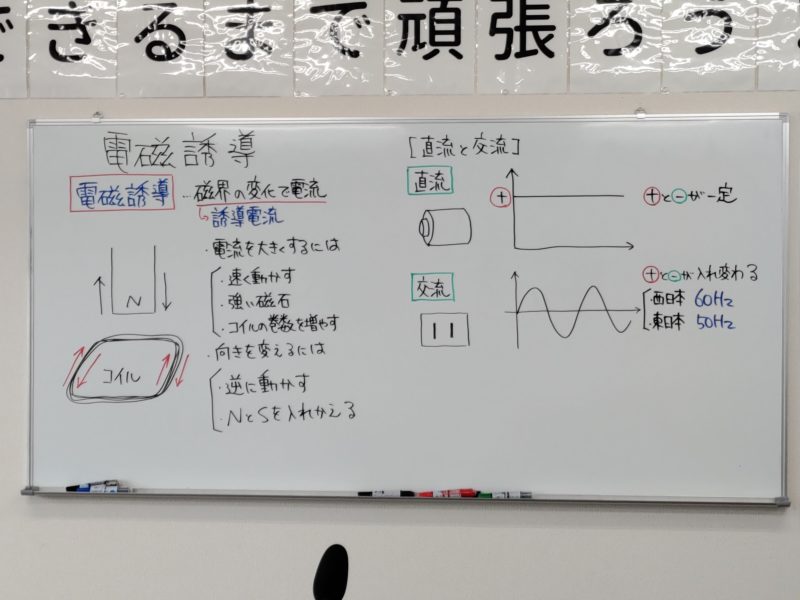 できるまで頑張ろう
電磁誘導
電磁誘導…磁界の変化で電流
↳誘導電流
・電流を大きくするには
・速く動かす
・強い磁石
・コイルの巻数を増やす
・向きを変えるには
・逆に動かす
・NとSを入れかえる
N
コイル
[直流と交流]
直流
+
+と-が一定
交流
+と-が入れ変わる
・西日本 60Hz
・東日本 50Hz